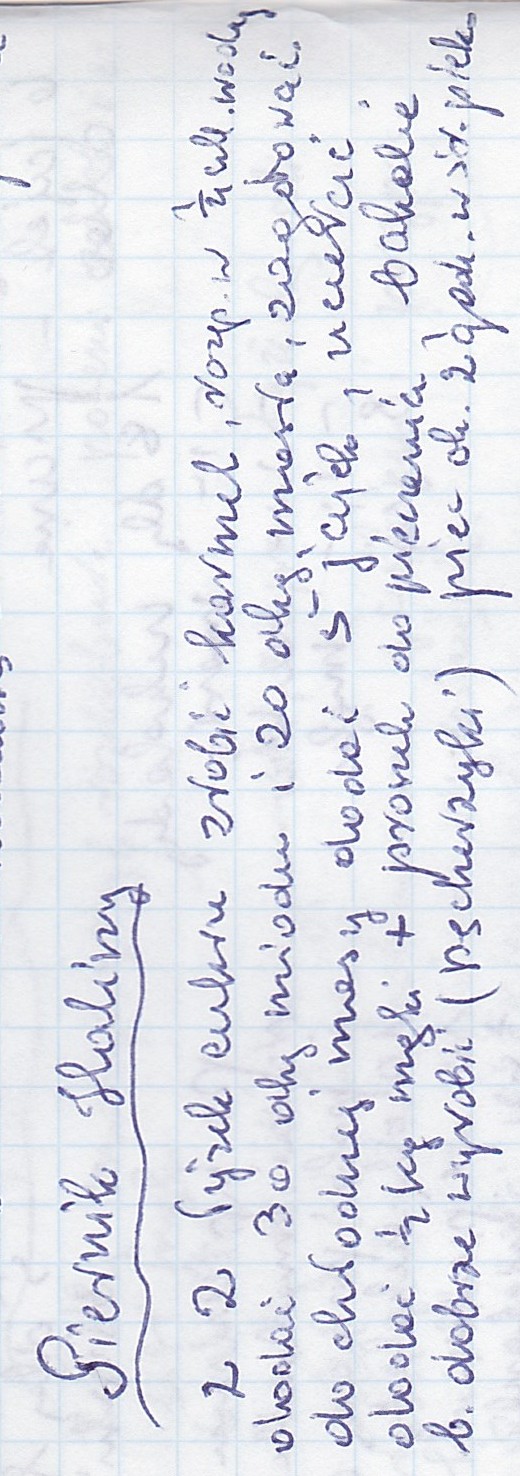 Piernik Haliny
z 2 łyżek cukru zrobić karmel, rozp. w ½ szkl. wody
dodać 30 dkg miodu i 20 dkg masła, zagotować.
do chłodnej masy dodać 5 jajek, ucierać
dodać ½ kg mąki + proszek do pieczenia, bakalie
b. dobrze wyrobić (pęcherzyki) piec ok. 2 godz. w śr. piek.